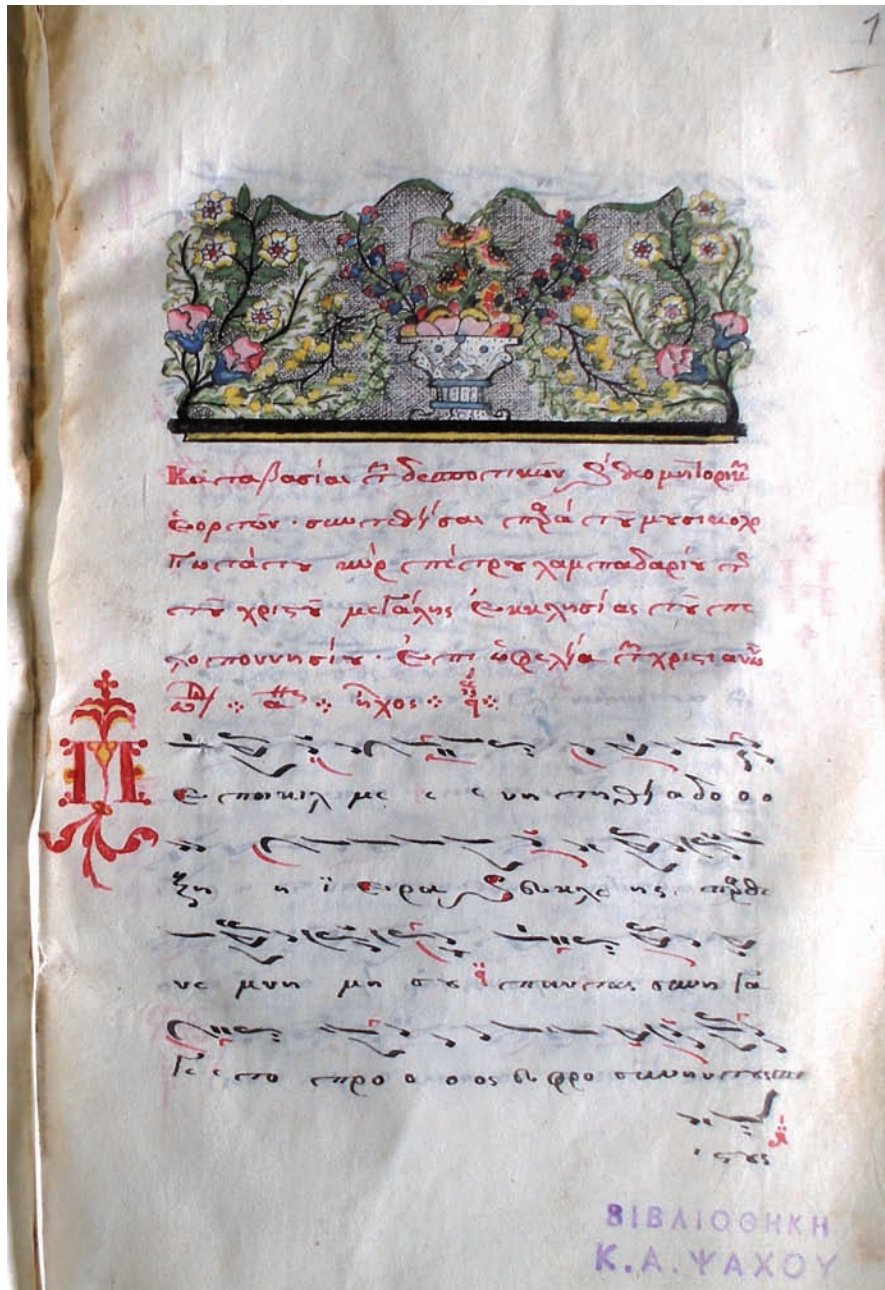 1
Καταβασίαι τῶν δεσποτικῶν καὶ θεομητορικῶν
ἑορτῶν · συντεθεῖσαι παρὰ τοῦ μουσικολο
γιωτάτου κὺρ πέτρου λαμπαδαρίου τῆς
τοῦ χριστοῦ μεγάλης ἐκκλησίας τοῦ πε
λοποννησίου · Ἐπὶ ὠφελείᾳ τῶν χριστιανῶν
ἦχος
Π
ε ποικιλ με ε ε νη τη θεί α δο ο ο
ξη η ϊ ε ρα και ευκλε ης παρθε
νε μνη μη σου παντας συνη γα
γε ε το προ ο ο ος ευφρο συνην τους πι
ι στους
ΒΙΒΛΙΟΘΗΚΗ
Κ. Α. ΨΑΧΟΥ